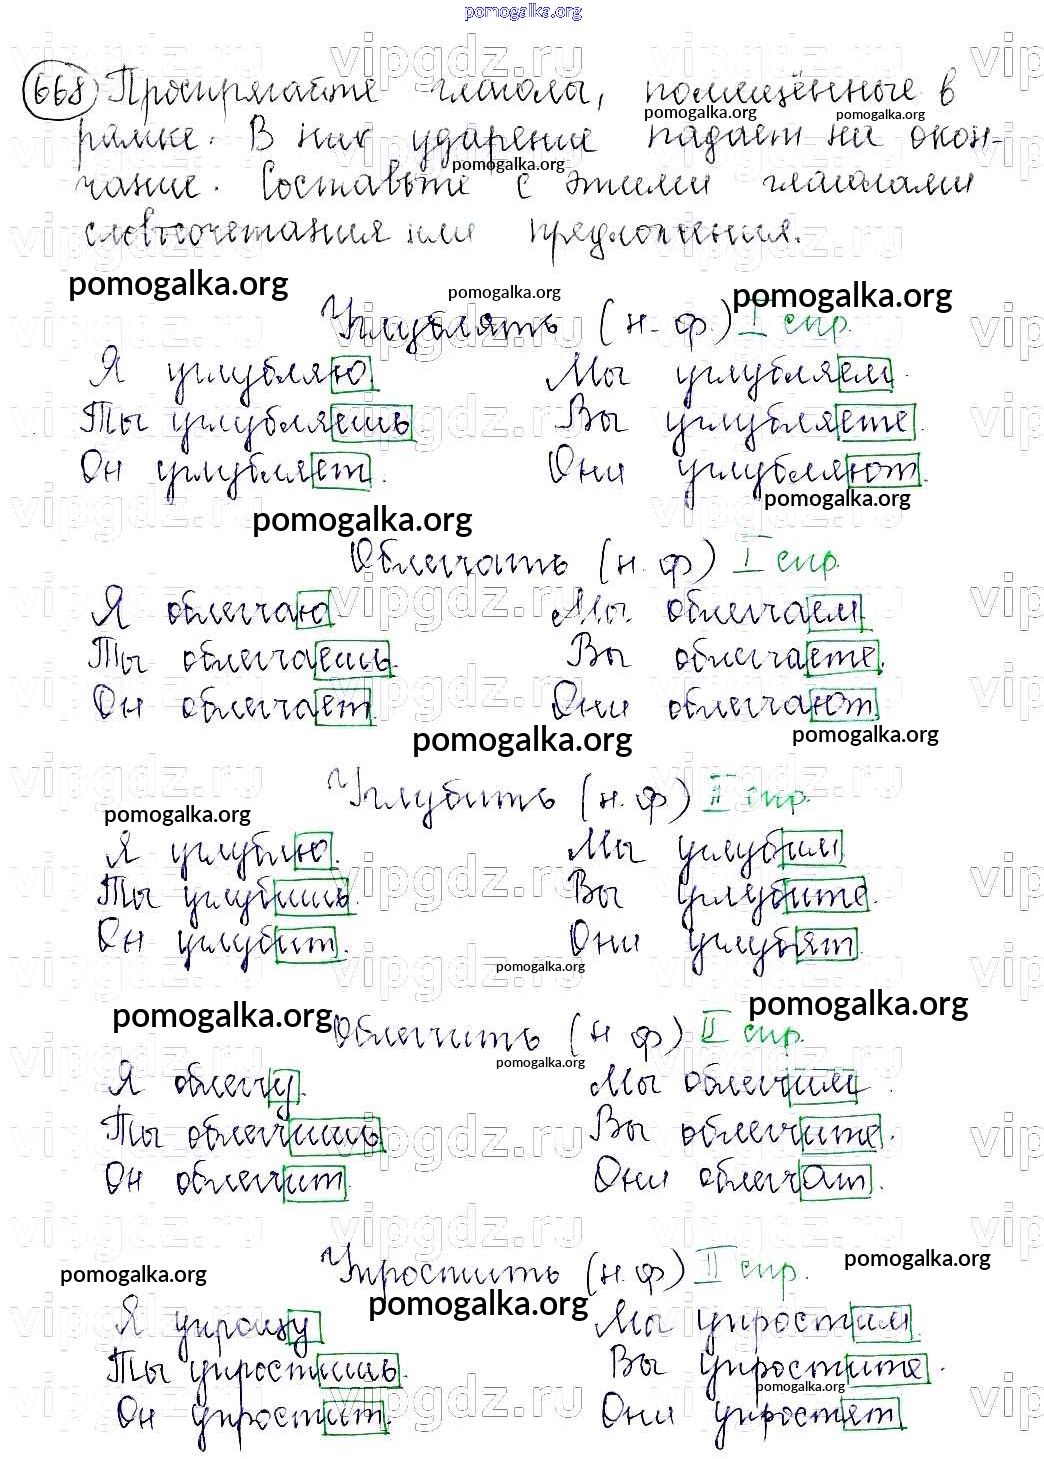 pomogalka.org
668 Проспрягайте глаголы, помещённые в
рамке. В них ударение падает на окон-
чание. Составьте с этими глаголами
словосочетания или предложения.
pomogalka.org
pomogalka.org
pomogalka.org
pomogalka.org
pomogalka.org
pomogalka.org
Углублять (н. ф.) I спр.
Я углубляю Мы углубляем.
Ты углубляешь Вы углубляете.
Он углубляет. Они углубляют.
pomogalka.org
pomogalka.org
Облегчать (н. ф) I спр.
Я облегчаю Мы облегчаем
Ты облегчаешь. Вы облегчаете.
Он облегчает Они облегчают.
pomogalka.org
pomogalka.org
Углубить (н. ф) II спр.
pomogalka.org
Я углублю. Мы углубим
Ты углубишь. Вы углубите.
Он углубит. Они углубят.
pomogalka.org
pomogalka.org
pomogalka.org
Облегчить (н ф) II спр.
pomogalka.org
Я облегчу. Мы облегчим.
Ты облегчишь Вы облегчите.
Он облегчит Они облегчат.
Упростить (н. ф) II спр.
pomogalka.org
pomogalka.org
pomogalka.org
Я упрощу Мы упростим
Ты упростишь Вы упростите.
pomogalka.org
Он упростит. Они упростят
vipgdz.ru